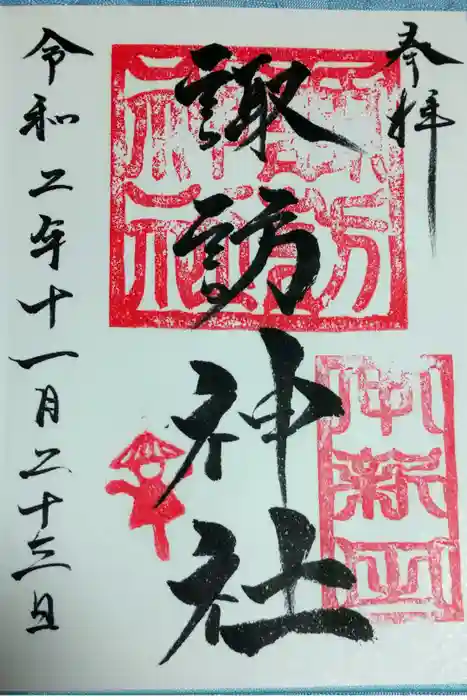 奉拝
諏訪神社
令和二年十一月二十三日